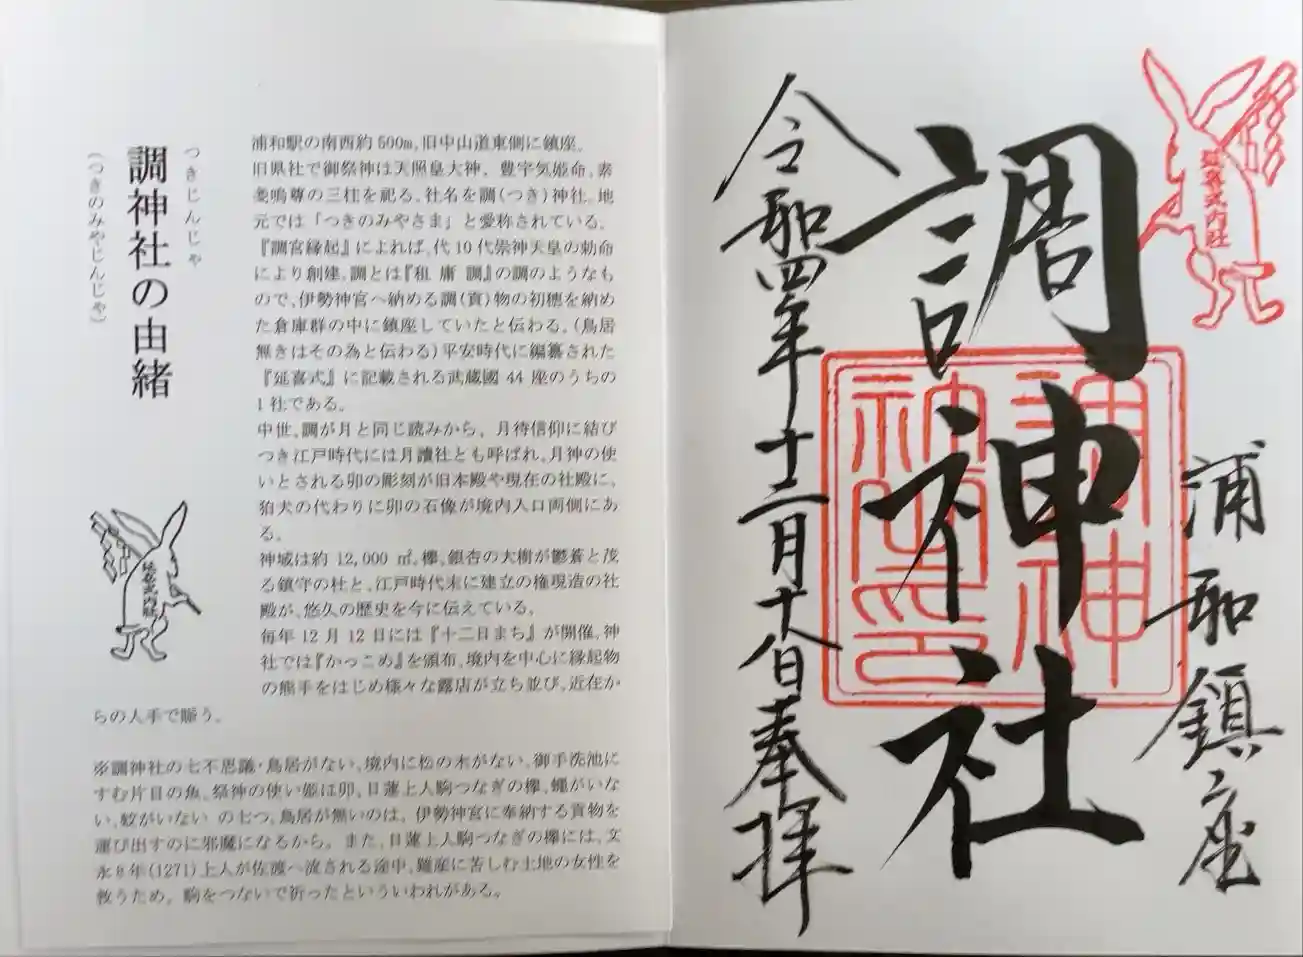 つきじんじゃ
調神社の由緒
(つきのみやじんじゃ)
浦和駅の南西約500m。旧中山道東側に鎮座。
旧県社で御祭神は天照皇大神、豊宇気姫命、素
戔嗚尊の三柱を祀る。社名を調(つき)神社。地
元では「つきのみやさま」と愛称されている。
『調宮縁起』によれば、代10代崇神天皇の勅命
により創建。調とは『租 庸 調』の調のようなも
ので、伊勢神宮へ納める調(貢)物の初穂を納め
た倉庫群の中に鎮座していたと伝わる。(鳥居
無きはその為と伝わる)平安時代に編纂された
『延喜式』に記載される武蔵國44座のうちの
1社である。
中世、調が月と同じ読みから、月待信仰に結び
つき江戸時代には月讀社とも呼ばれ、月神の使
いとされる卯の彫刻が旧本殿や現在の社殿に、
狛犬の代わりに卯の石像が境内入口両側にあ
る。
神域は約12,000㎡。欅、銀杏の大樹が鬱蒼と茂
る鎮守の杜と、江戸時代末に建立の権現造の社
殿が、悠久の歴史を今に伝えている。
毎年12月12日には『十二日まち』が開催。神
社では『かっこめ』を頒布、境内を中心に縁起物
の熊手をはじめ様々な露店が立ち並び、近在か
らの人手で賑う。
※調神社の七不思議・鳥居がない、境内に松の木がない、御手洗池に
すむ片目の魚、祭神の使い姫は卯、日蓮上人駒つなぎの欅、蠅がいな
い、蚊がいない の七つ。鳥居が無いのは、伊勢神宮に奉納する貢物を
運び出すのに邪魔になるから。また、日蓮上人駒つなぎの欅には、文
永8年(1271)上人が佐渡へ流される途中、難産に苦しむ土地の女性を
救うため、駒をつないで祈ったといういわれがある。
延喜式内社
延喜式内社
浦和鎮座
調神社
調神
社之印
令和四年十二月十八日奉拝